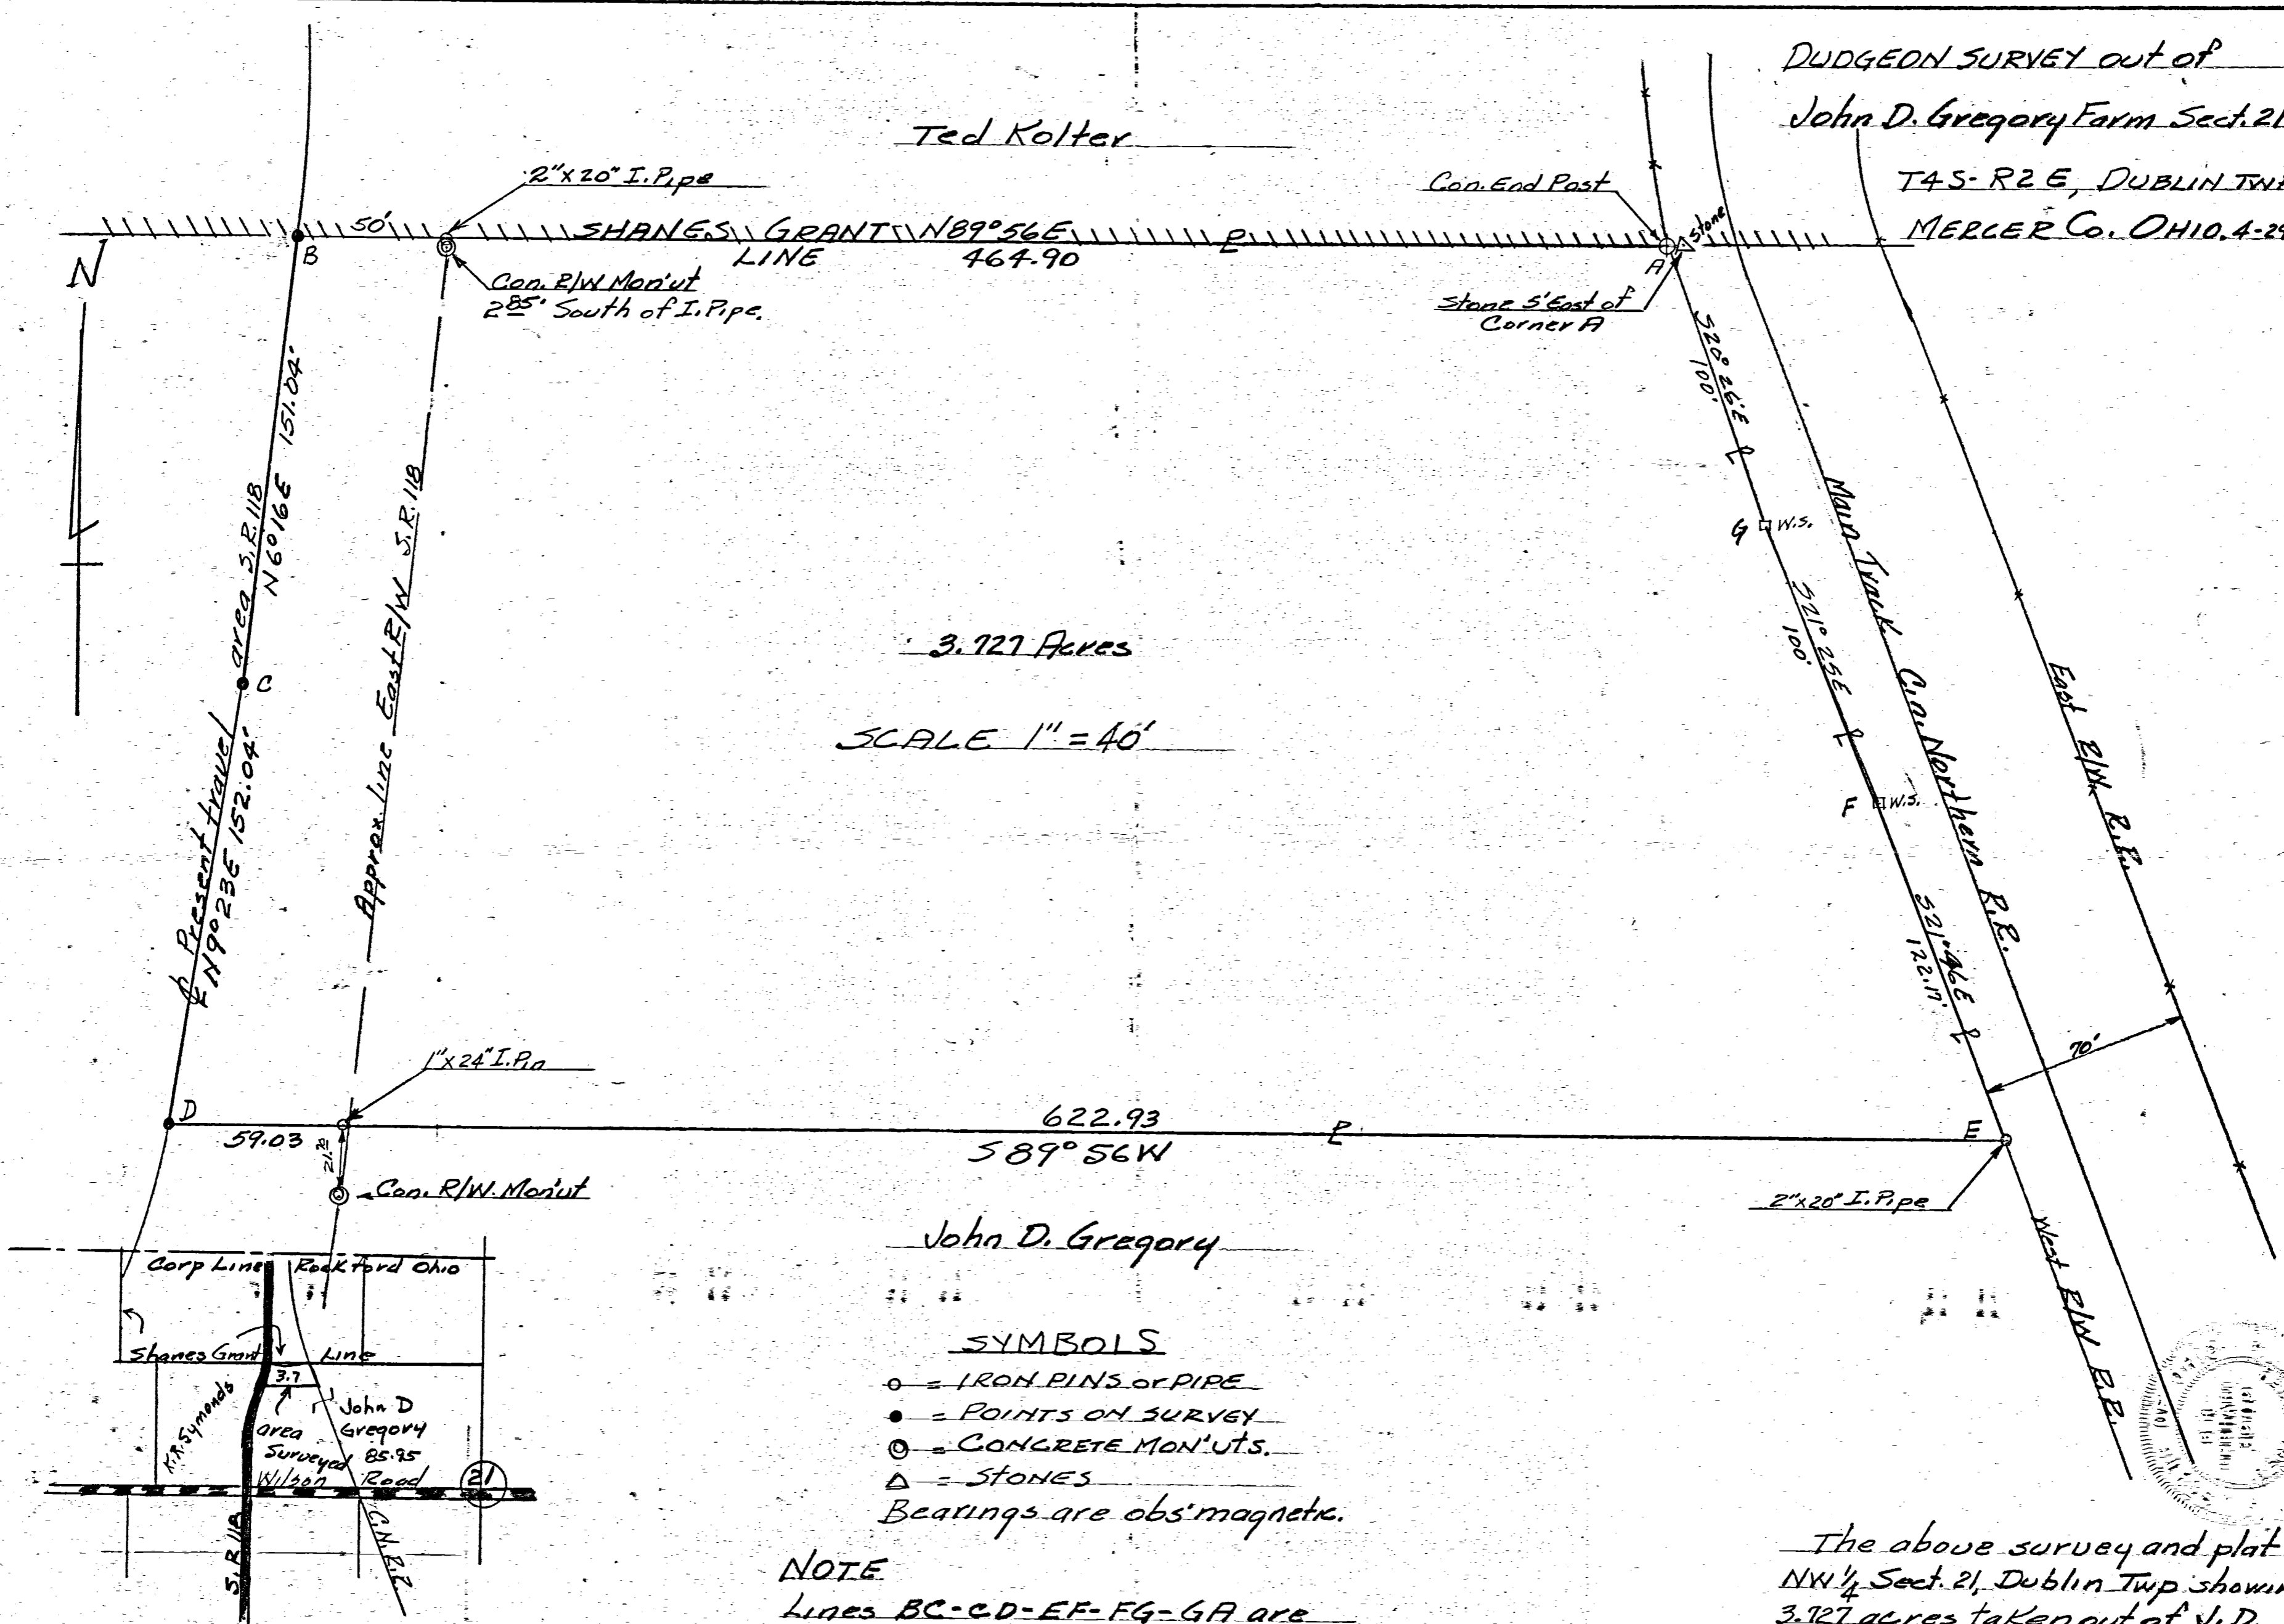 DUDGEON SURVEY out of
John D. Gregory Farm Sect. 21
T4S-R2E, DUBLIN TWP
MERCER Co. OHIO. 4-29
Ted Kolter
2"x20" I.Pipe
Con. End Post
Stone
50'
SHANES GRANT N89°56E
LINE 464.90
P
B
A
N
Con. R/W Mon'ut
2 85' South of I.Pipe.
Stone 5' East of
Corner A
N6°16E 151.04'
S20°26'E
100'
P
G
W.S.
S21°25E
100'
P
F
W.S.
S21°46E
122.17'
P
Main Track Cin. Northern R.R.
East R/W. R.R.
70'
West R/W R.R.
C
Present travel area S.R.118
N9°23E 152.04'
Approx. line East R/W S.R.118
3.727 Acres
SCALE 1"=40'
1"x24" I.Pin
D
59.03
21.20
622.93
S89°56W
P
E
2"x20" I.Pipe
Con. R/W. Mon'ut
John D. Gregory
Corp Line Rockford Ohio
Shanes Grant Line
3.7
K.R. Symonds
area
Surveyed
John D
Gregory
85.95
Wilson Road
21
S.R.118
C.N.R.R.
SYMBOLS
= IRON PINS or PIPE
= POINTS ON SURVEY
= CONCRETE MON'UTS.
= STONES
Bearings are obs' magnetic.
NOTE
Lines BC-CD-EF-FG-GA are
The above survey and plat
NW 1/4 Sect. 21, Dublin Twp showin
3.727 acres taken out of J.D.